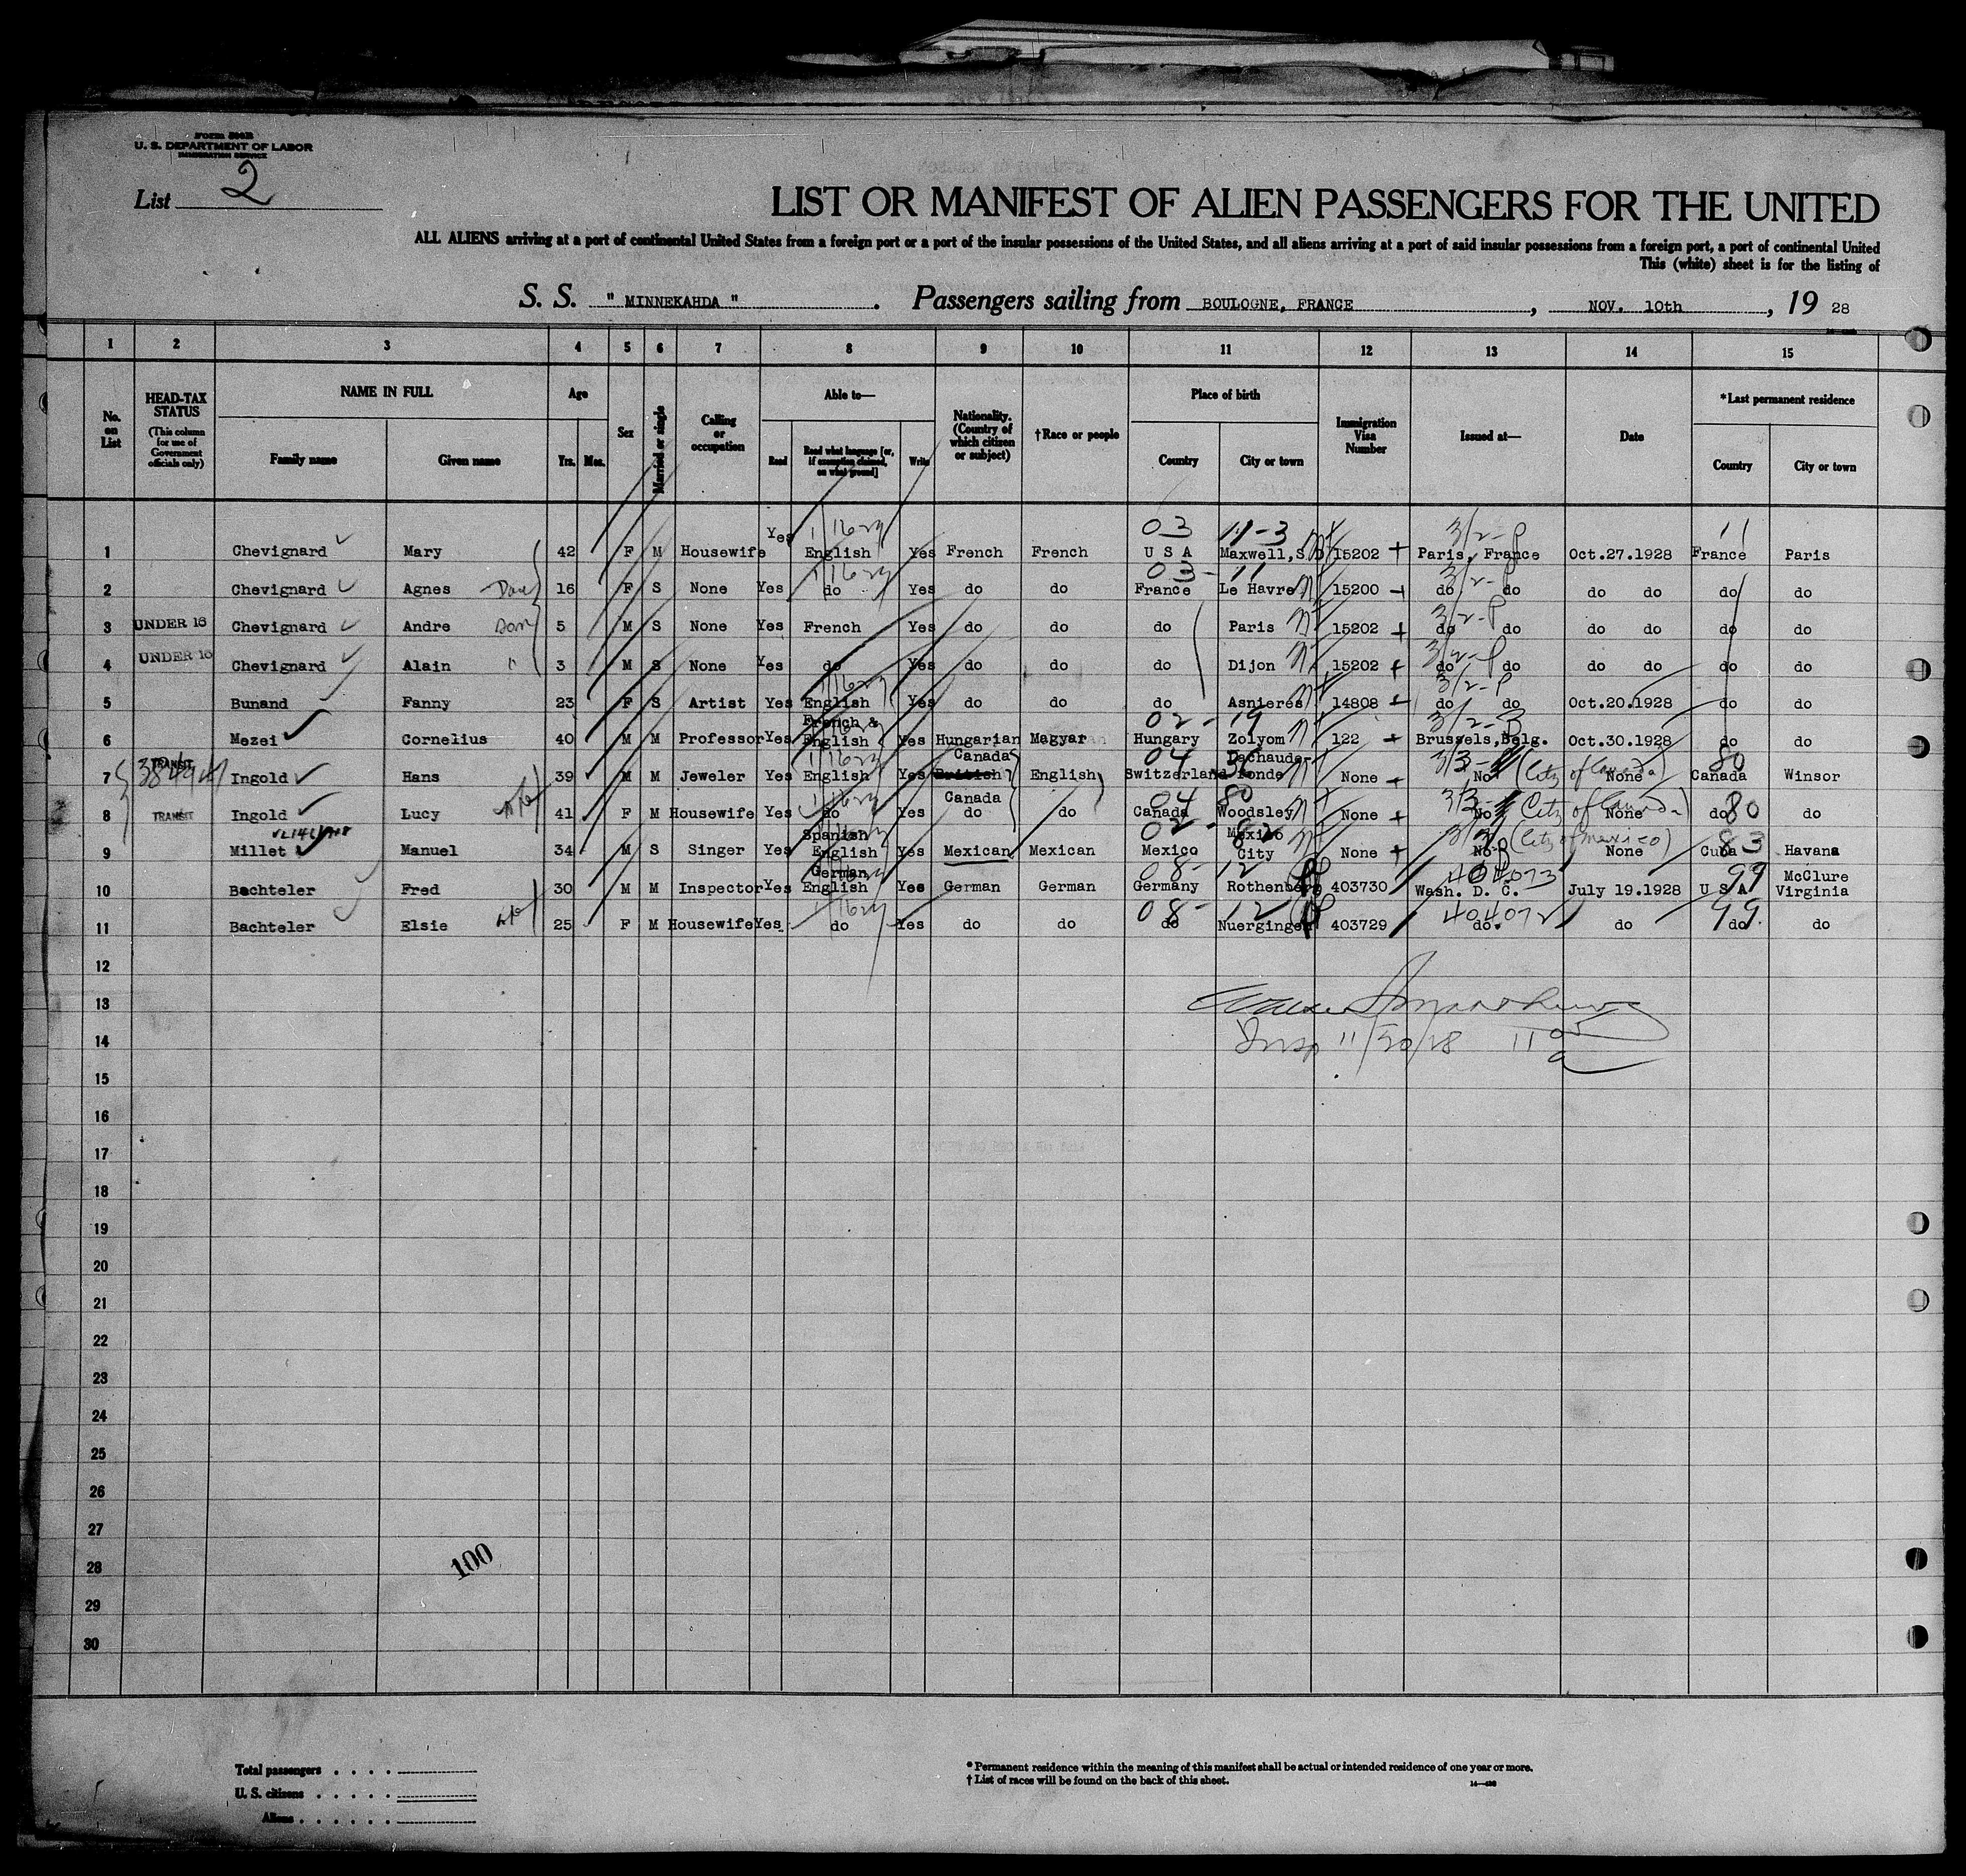 Form 500B
U. S. DEPARTMENT OF LABOR
IMMIGRATION SERVICE
List 2
LIST OR MANIFEST OF ALIEN PASSENGERS FOR THE UNITED
ALL ALIENS arriving at a port of continental United States from a foreign port or a port of the insular possessions of the United States, and all aliens arriving at a port of said insular possessions from a foreign port, a port of continental United
This (white) sheet is for the listing of
S. S. " MINNEKAHDA " . Passengers sailing from BOULOGNE, FRANCE , NOV. 10th , 19 28
1 2 3 4 5 6 7 8 9 10 11 12 13 14 15
No. on List
HEAD-TAX STATUS (This column for use of Government officials only)
NAME IN FULL Family name Given name
Age Yrs. Mos.
Sex
Married or single
Calling or occupation
Able to— Read Read what language [or, if exemption claimed, on what ground] Write
Nationality. (Country of which citizen or subject)
†Race or people
Place of birth Country City or town
Immigration Visa Number
Issued at—
Date
*Last permanent residence Country City or town
03 11-3 3/2-P 11
1 Chevignard Mary 42 F M Housewife Yes English Yes French French U S A Maxwell,S.D 15202 Paris, France Oct.27.1928 France Paris
03-11 3/2-P
2 Chevignard Agnes Dau 16 F S None Yes do Yes do do France Le Havre 15200 do do do do do do
3/2-P
3 UNDER 16 Chevignard Andre Son 5 M S None Yes French Yes do do do Paris 15202 do do do do do do
3/2-P
4 UNDER 16 Chevignard Alain " 3 M S None Yes do Yes do do do Dijon 15202 do do do do do do
3/2-P
5 Bunand Fanny 23 F S Artist Yes English Yes do do do Asnieres 14808 do do Oct.20.1928 do do
French & 02-19
6 Mezei Cornelius 40 M M Professor Yes English Yes Hungarian Magyar Hungary Zolyom 122 Brussels,Belg. Oct.30.1928 do do
TRANSIT Canada 04 80
7 Ingold Hans 39 M M Jeweler Yes English Yes British English Switzerland Fonde None No (City of Canada) None Canada Winsor
Canada 04 80
8 TRANSIT Ingold Lucy wife 41 F M Housewife Yes do Yes do do Canada Woodsley None No (City of Canada) None do 80 do
Spanish 02 Mexico 83
9 Millet Manuel 34 M S Singer Yes English Yes Mexican Mexican Mexico City None No (City of Mexico) None Cuba Havana
German 08-12 404073 99 McClure
10 Bachteler Fred 30 M M Inspector Yes English Yes German German Germany Rothenberg 403730 Wash. D. C. July 19.1928 U S A Virginia
08-12 404072 99
11 Bachteler Elsie wife 25 F M Housewife Yes do Yes do do do Nuergingen 403729 do. do do do
12
13
14 Insp 11/20/28
15
16
17
18
19
20
21
22
23
24
25
26
27
28 100
29
30
Total passengers
U. S. citizens
Aliens
* Permanent residence within the meaning of this manifest shall be actual or intended residence of one year or more.
† List of races will be found on the back of this sheet.